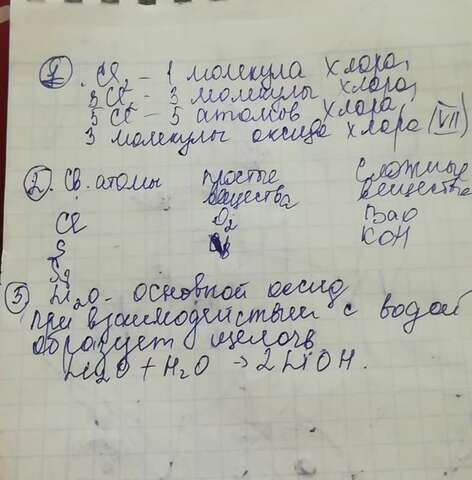 1 Cl2 - 1 молекула хлора,
3Cl2 - 3 молекулы хлора,
5Cl - 5 атомов хлора
3 молекулы оксида хлора (VII)
2. Св. атомы простые вещества сложные вещества
Cl O2 ВаО
S КОН
3 Li2O - основной оксид
при взаимодействии с водой
образует щелочь
Li2O + H2O → 2LiOH.